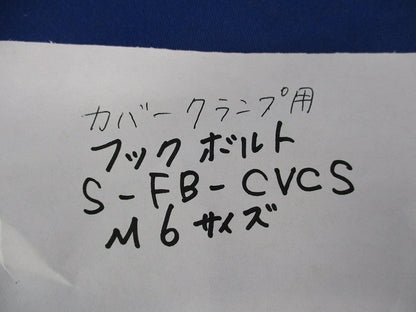 カバークランプ用
フックボルト
S-FB-CVCS
M6サイズ